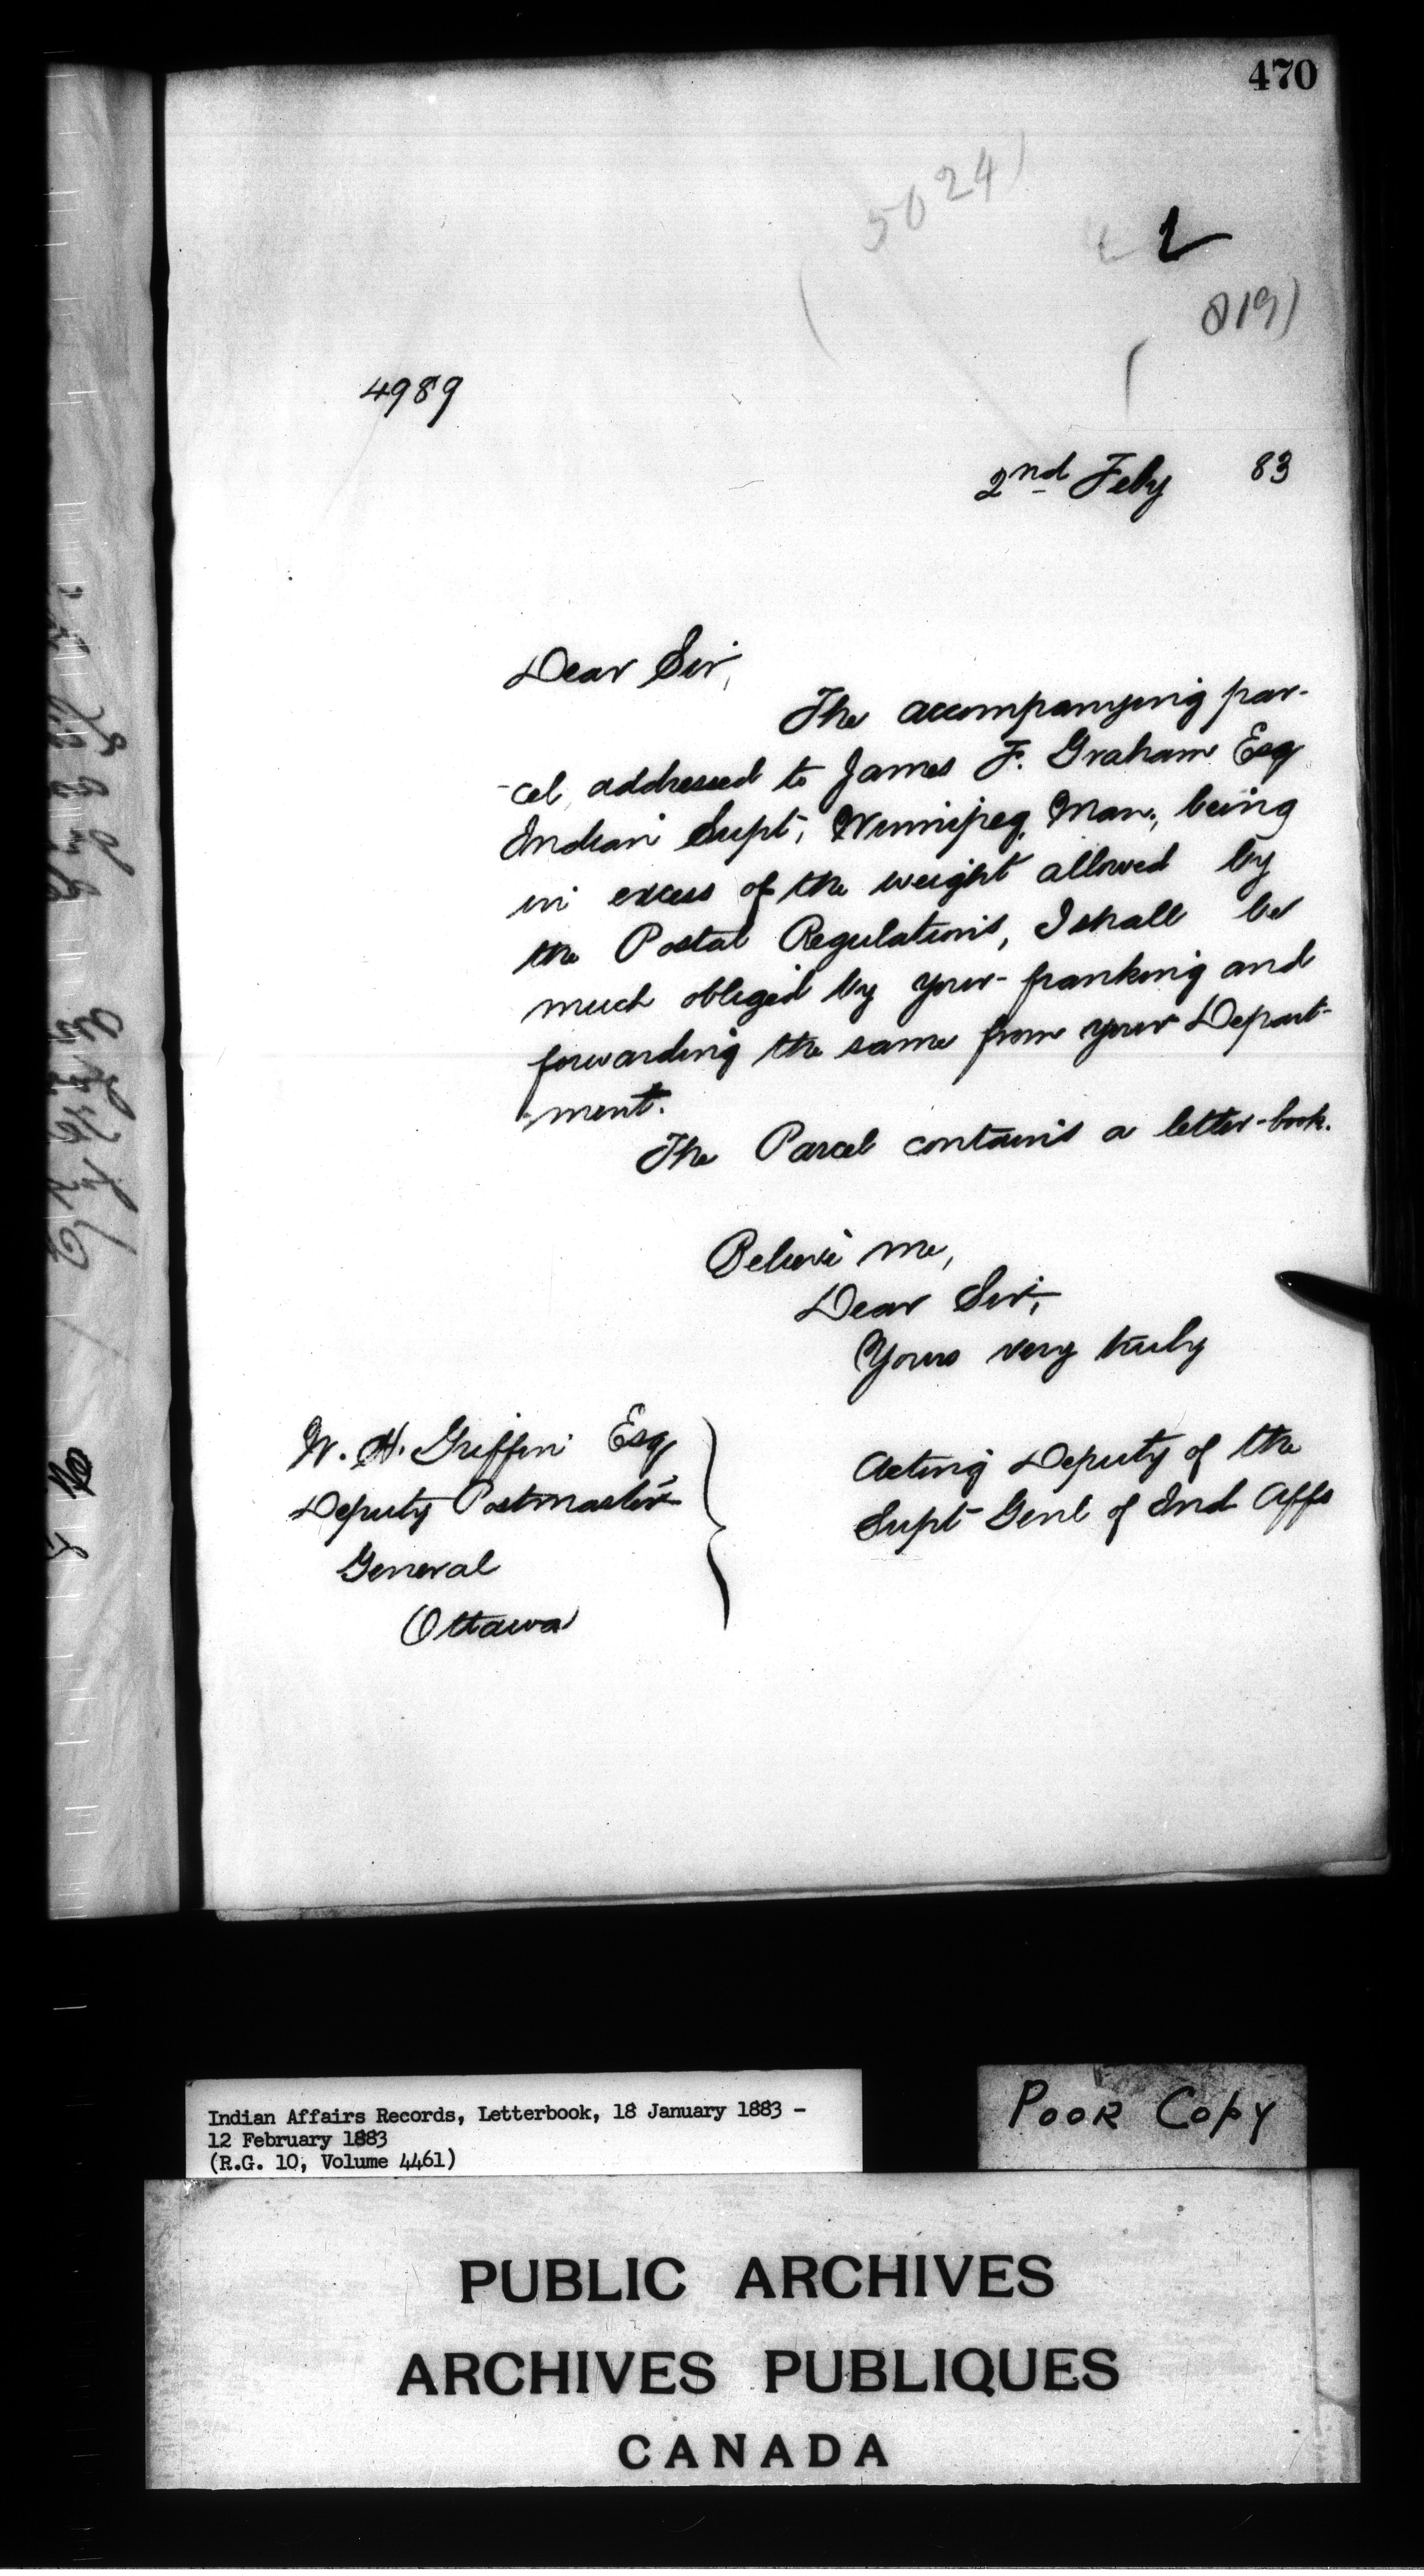 470
5024)
819)
4989
2nd Feby 83
Dear Sir,
The accompanying par-
-cel, addressed to James F. Graham Esq
Indian Supt, Winnipeg, Man., being
in excess of the weight allowed by
the Postal Regulations, I shall be
much obliged by your franking and
forwarding the same from your Depart-
-ment.
The Parcel contains a letter-book.
Believe me,
Dear Sir,
Yours very truly
W. H. Griffin Esq
Deputy Postmaster
General
Ottawa
Acting Deputy of the
Supt Genl of Ind Affs
Indian Affairs Records, Letterbook, 18 January 1883 -
12 February 1883
(R.G. 10, Volume 4461)
POOR COPY
PUBLIC ARCHIVES
ARCHIVES PUBLIQUES
CANADA